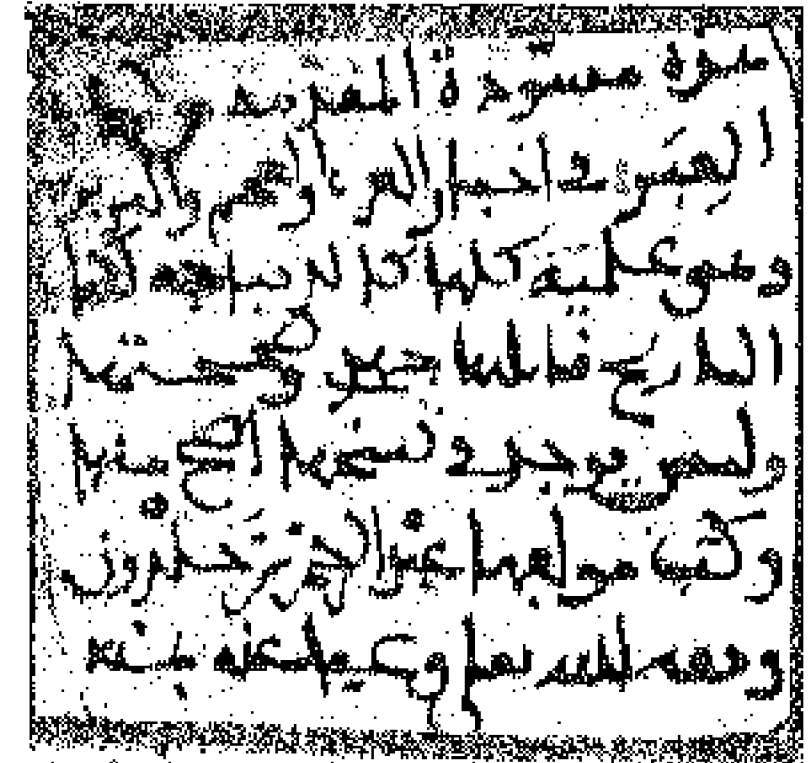 هذه مسودة المقدمة من كتاب
العبر في اخبار العرب والعجم والبربر
وهي علمية كلها كالديباجة لكتاب
التاريخ قابلتها جهدي وصححتها
وليس يوجد في نسخها اصح منها
وكتب مولفها عبد الرحمن بن خلدون
وفقه الله تعالى وعفا عنه بمنه